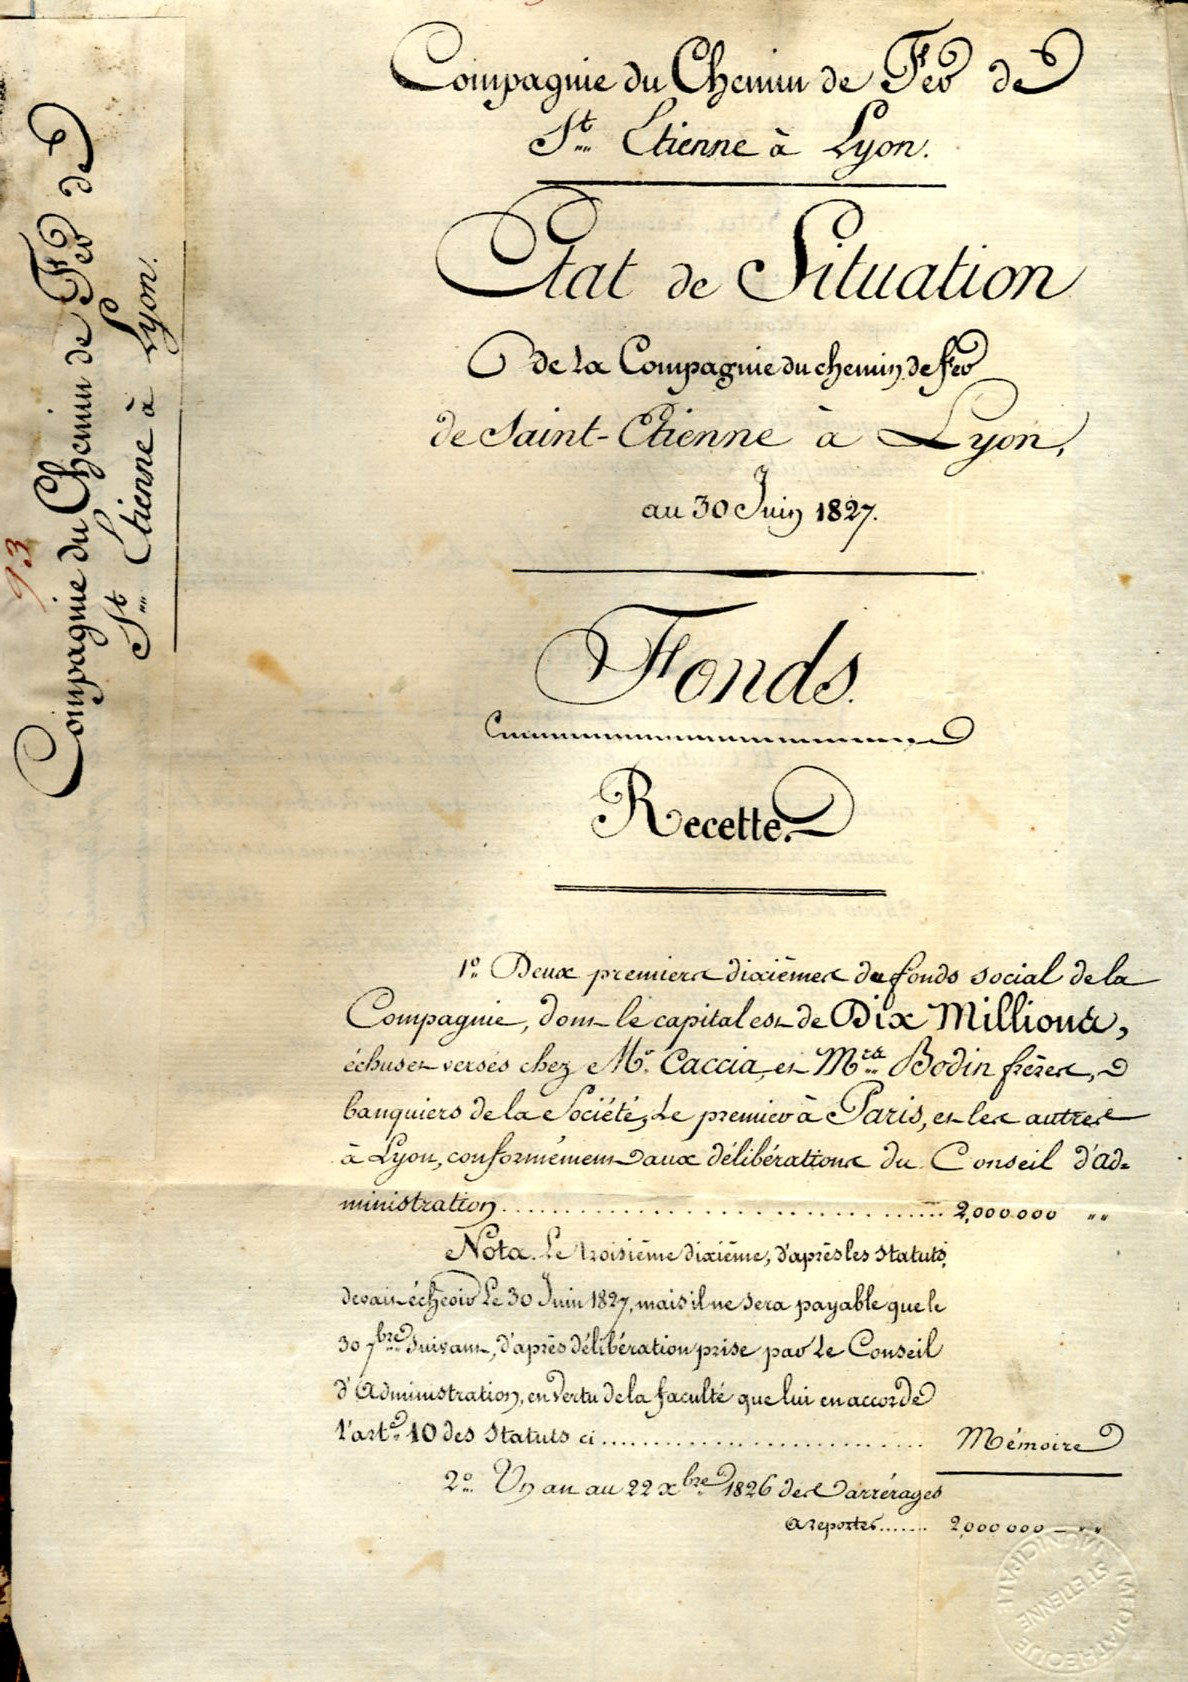 Compagnie du Chemin de Fer de
St. Etienne à Lyon.
Etat de Situation
de la Compagnie du chemin de fer
de Saint-Etienne à Lyon,
au 30 Juin 1827.
Fonds.
Recette.
1º. Deux premiers dixièmes du fonds social de la
Compagnie, dont le capital est de Dix Millions,
échus et versés chez Mr. Caccia, et Mrs. Bodin frères,
banquiers de la Société, Le premier à Paris, et les autres
à Lyon, conformément aux délibérations du Conseil d'ad=
ministration........................ 2,000.000 〃
Nota. Le troisième dixième, d'après les statuts,
devait échoir Le 30 Juin 1827, mais il ne sera payable que le
30 7bre. Suivant, d'après délibération prise par Le Conseil
d'Administration, en vertu de la faculté que lui en accorde
l'arte. 10 des Statuts ci........................ Mémoire
2º. Un an au 22 xbre. 1826 des arrérages
a reporter....... 2,000 000 _ 〃
Compagnie du Chemin de Fer de
St. Etienne à Lyon.
93
MEDIATHEQUE MUNICIPALE
ST ETIENNE